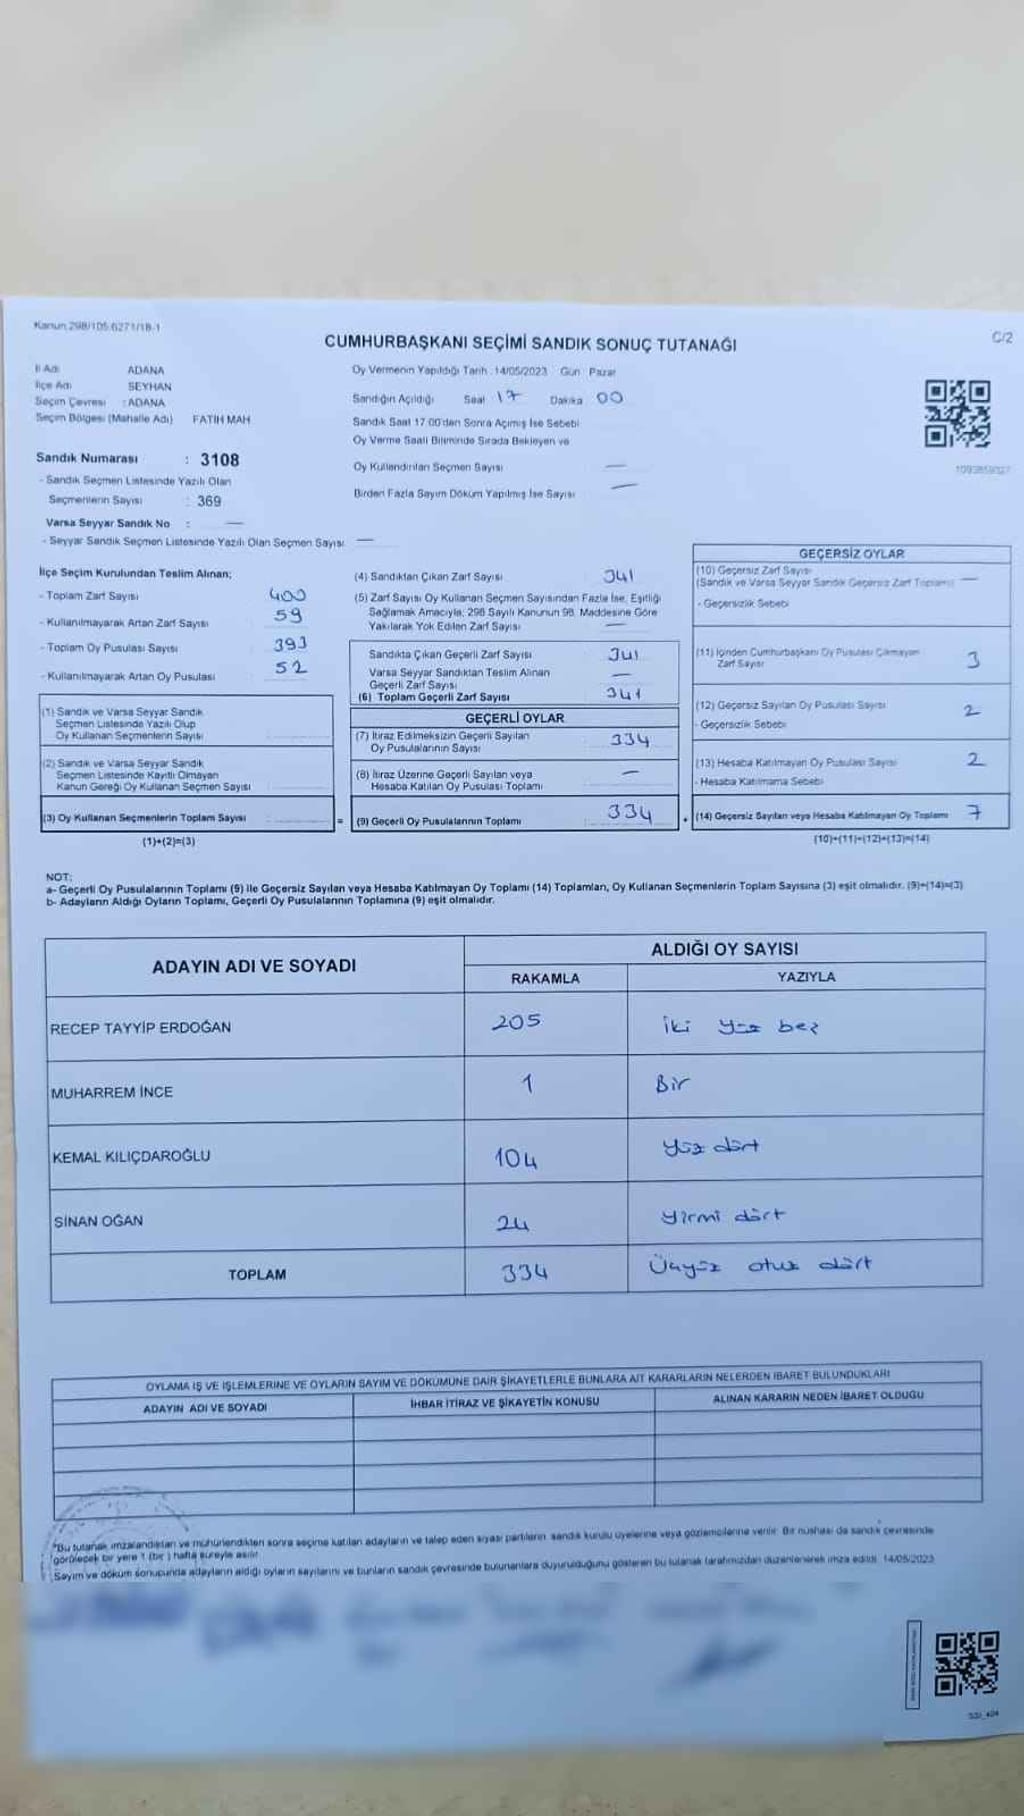 Kanun 298/105.6271/18-1
C/2
CUMHURBAŞKANI SEÇİMİ SANDIK SONUÇ TUTANAĞI
İl Adı ADANA
İlçe Adı SEYHAN
Seçim Çevresi : ADANA
Seçim Bölgesi (Mahalle Adı) FATİH MAH
Sandık Numarası : 3108
- Sandık Seçmen Listesinde Yazılı Olan
Seçmenlerin Sayısı : 369
Varsa Seyyar Sandık No : —
- Seyyar Sandık Seçmen Listesinde Yazılı Olan Seçmen Sayısı —
Oy Vermenin Yapıldığı Tarih : 14/05/2023 Gün : Pazar
Sandığın Açıldığı Saat 17 Dakika 00
Sandık Saat 17.00'den Sonra Açılmış İse Sebebi
Oy Verme Saati Bitiminde Sırada Bekleyen ve
Oy Kullandırılan Seçmen Sayısı —
Birden Fazla Sayım Döküm Yapılmış İse Sayısı —
İlçe Seçim Kurulundan Teslim Alınan;
- Toplam Zarf Sayısı 400
- Kullanılmayarak Artan Zarf Sayısı 59
- Toplam Oy Pusulası Sayısı 393
- Kullanılmayarak Artan Oy Pusulası 52
(1) Sandık ve Varsa Seyyar Sandık
Seçmen Listesinde Yazılı Olup
Oy Kullanan Seçmenlerin Sayısı
(2) Sandık ve Varsa Seyyar Sandık
Seçmen Listesinde Kayıtlı Olmayan
Kanun Gereği Oy Kullanan Seçmen Sayısı
(3) Oy Kullanan Seçmenlerin Toplam Sayısı
(1)+(2)=(3)
(4) Sandıktan Çıkan Zarf Sayısı 341
(5) Zarf Sayısı Oy Kullanan Seçmen Sayısından Fazla İse, Eşitliği
Sağlamak Amacıyla; 298 Sayılı Kanunun 98. Maddesine Göre
Yakılarak Yok Edilen Zarf Sayısı —
Sandıkta Çıkan Geçerli Zarf Sayısı 341
Varsa Seyyar Sandıktan Teslim Alınan
Geçerli Zarf Sayısı —
(6) Toplam Geçerli Zarf Sayısı 341
GEÇERLİ OYLAR
(7) İtiraz Edilmeksizin Geçerli Sayılan
Oy Pusulalarının Sayısı 334
(8) İtiraz Üzerine Geçerli Sayılan veya
Hesaba Katılan Oy Pusulası Toplamı —
= (9) Geçerli Oy Pusulalarının Toplamı 334
GEÇERSİZ OYLAR
(10) Geçersiz Zarf Sayısı
(Sandık ve Varsa Seyyar Sandık Geçersiz Zarf Toplamı) —
- Geçersizlik Sebebi
(11) İçinden Cumhurbaşkanı Oy Pusulası Çıkmayan
Zarf Sayısı 3
(12) Geçersiz Sayılan Oy Pusulası Sayısı 2
- Geçersizlik Sebebi
(13) Hesaba Katılmayan Oy Pusulası Sayısı 2
- Hesaba Katılmama Sebebi
(14) Geçersiz Sayılan veya Hesaba Katılmayan Oy Toplamı 7
(10)+(11)+(12)+(13)=(14)
NOT;
a- Geçerli Oy Pusulalarının Toplamı (9) ile Geçersiz Sayılan veya Hesaba Katılmayan Oy Toplamı (14) Toplamları, Oy Kullanan Seçmenlerin Toplam Sayısına (3) eşit olmalıdır. (9)+(14)=(3)
b- Adayların Aldığı Oyların Toplamı, Geçerli Oy Pusulalarının Toplamına (9) eşit olmalıdır.
ADAYIN ADI VE SOYADI
ALDIĞI OY SAYISI
RAKAMLA YAZIYLA
RECEP TAYYİP ERDOĞAN 205 iki yüz beş
MUHARREM İNCE 1 Bir
KEMAL KILIÇDAROĞLU 104 yüz dört
SİNAN OĞAN 24 yirmi dört
TOPLAM 334 Üçyüz otuz dört
OYLAMA İŞ VE İŞLEMLERİNE VE OYLARIN SAYIM VE DÖKÜMÜNE DAİR ŞİKAYETLERLE BUNLARA AİT KARARLARIN NELERDEN İBARET BULUNDUKLARI
ADAYIN ADI VE SOYADI İHBAR İTİRAZ VE ŞİKAYETİN KONUSU ALINAN KARARIN NEDEN İBARET OLDUĞU
*Bu tutanak imzalandıktan ve mühürlendikten sonra seçime katılan adayların ve talep eden siyasi partilerin sandık kurulu üyelerine veya gözlemcilerine verilir. Bir nüshası da sandık çevresinde
görülecek bir yere 1 (bir) hafta süreyle asılır.
Sayım ve döküm sonucunda adayların aldığı oyların sayılarını ve bunların sandık çevresinde bulunanlara duyurulduğunu gösteren bu tutanak tarafımızdan düzenlenerek imza edildi. 14/05/2023